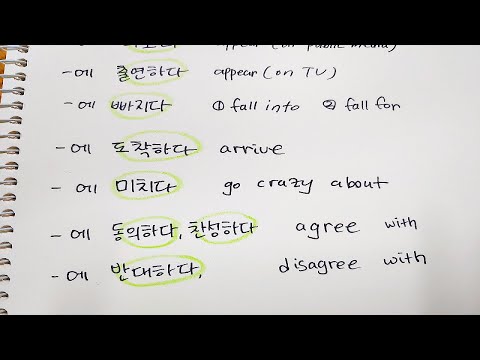 appear (on public media)
-에 출연하다 appear (on TV)
-에 빠지다 ① fall into ② fall for
-에 도착하다 arrive
-에 미치다 go crazy about
-에 동의하다, 찬성하다 agree with
-에 반대하다, disagree with